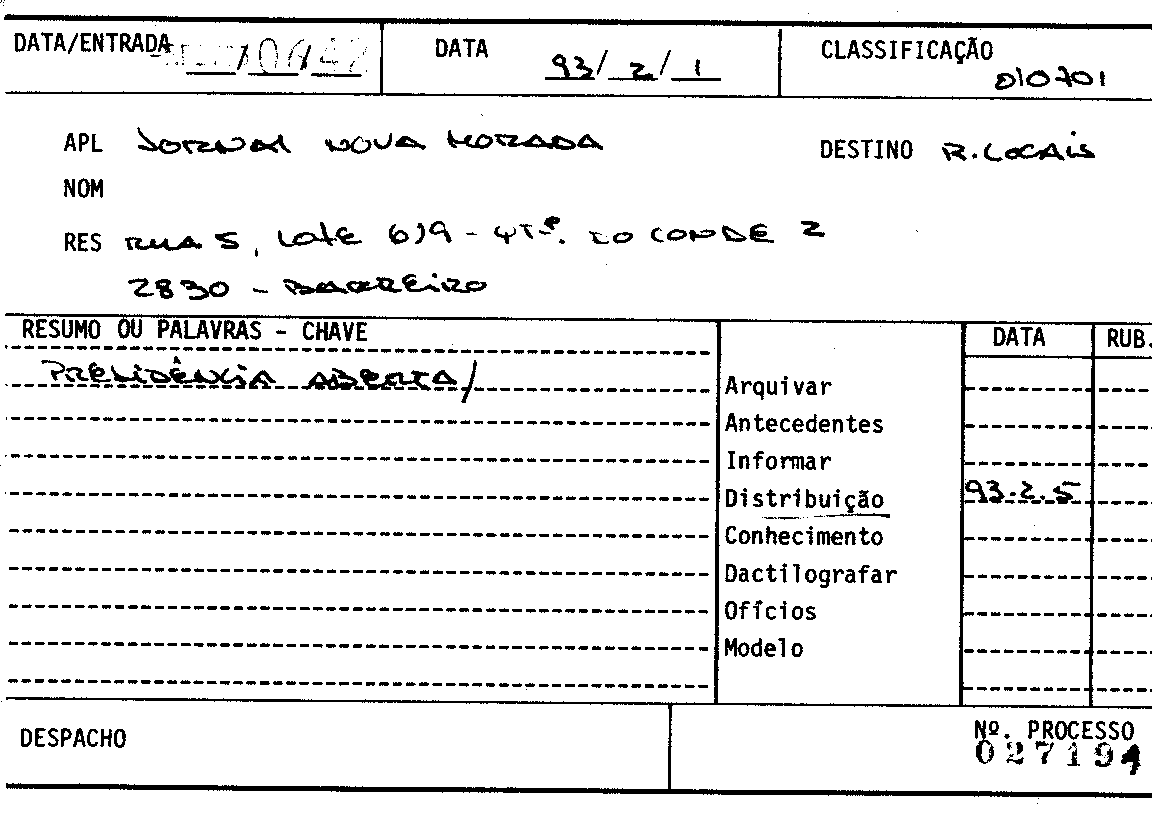 DATA/ENTRADA
DATA 93/2/1
CLASSIFICAÇÃO 010701
APL JORNAL NOVA MORADA
DESTINO R. LOCAIS
NOM
RES RUA 5, Lote 6/9 - QTª. DO CONDE 2
2830 - BARREIRO
RESUMO OU PALAVRAS - CHAVE
DATA RUB.
PRESIDÊNCIA ABERTA/
Arquivar
Antecedentes
Informar
Distribuição 93.2.5
Conhecimento
Dactilografar
Ofícios
Modelo
DESPACHO
Nº. PROCESSO
027194